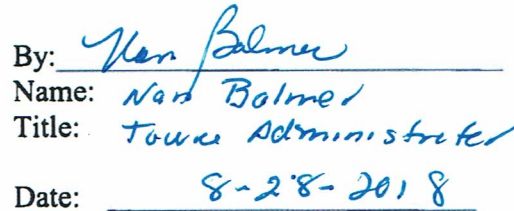 By: Nan Balmer
Name: Nan Balmer
Title: Town Administrator
Date: 8-28-2018